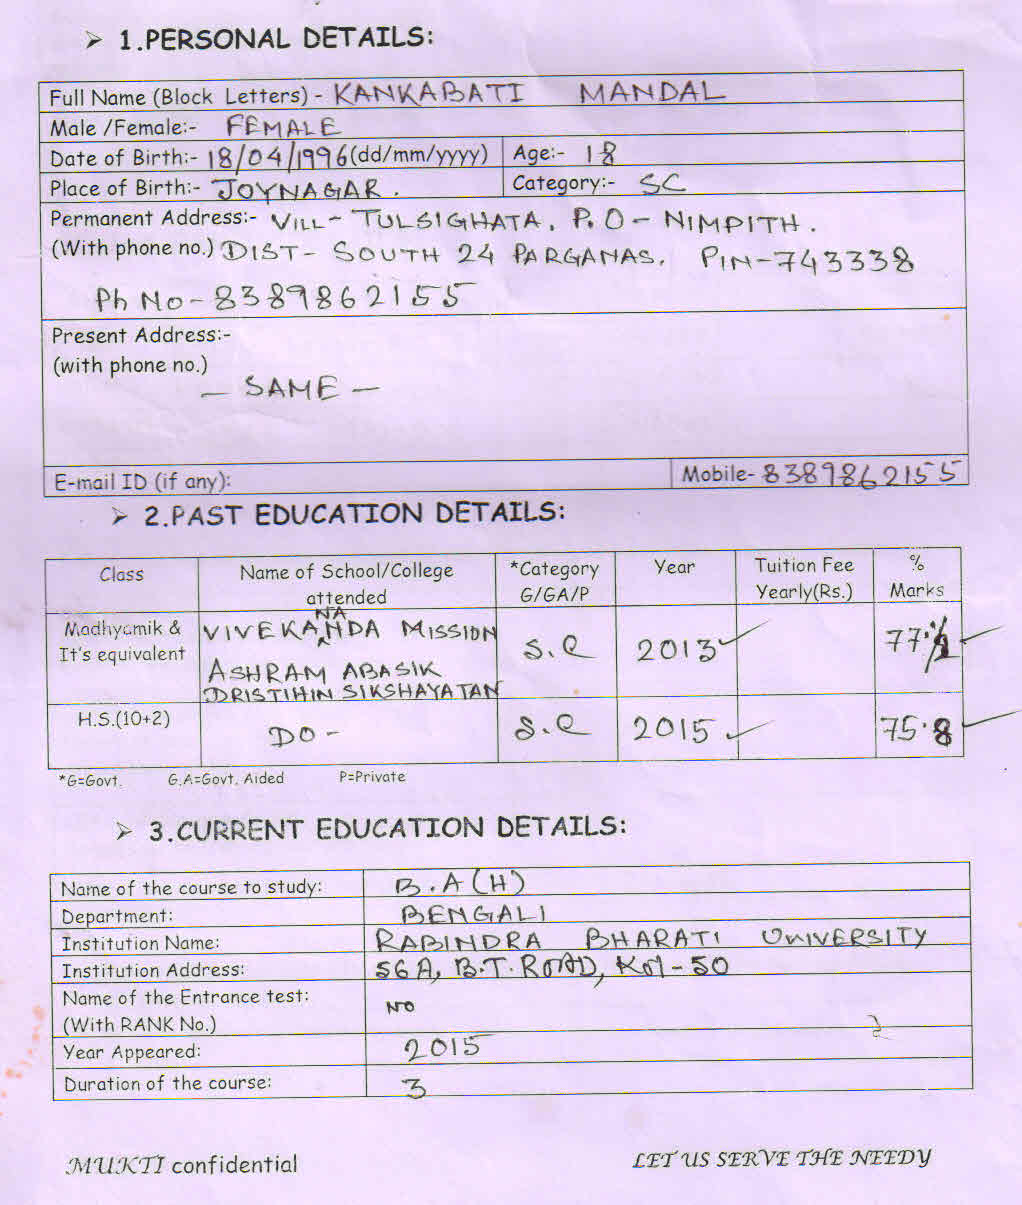 ➢ 1.PERSONAL DETAILS:
Full Name (Block Letters) - KANKABATI MANDAL
Male /Female:- FEMALE
Date of Birth:- 18/04/1996(dd/mm/yyyy) Age:- 18
Place of Birth:- JOYNAGAR. Category:- SC
Permanent Address:- VILL- TULSIGHATA, P.O- NIMPITH.
(With phone no.) DIST- SOUTH 24 PARGANAS, PIN-743338
Ph No- 8389862155
Present Address:-
(with phone no.)
- SAME -
E-mail ID (if any): Mobile- 8389862155
➢ 2.PAST EDUCATION DETAILS:
Class Name of School/College attended *Category G/GA/P Year Tuition Fee Yearly(Rs.) % Marks
Madhyamik & It's equivalent VIVEKANANDA MISSION S.C 2013
ASHRAM ABASIK
DRISTIHIN SIKSHAYATAN
H.S.(10+2) DO- S.C 2015 75.8
*G=Govt. G.A=Govt. Aided P=Private
➢ 3.CURRENT EDUCATION DETAILS:
Name of the course to study: B.A(H)
Department: BENGALI
Institution Name: RABINDRA BHARATI UNIVERSITY
Institution Address: 56A, B.T. ROAD, Kol-50
Name of the Entrance test:
(With RANK No.) NO
Year Appeared: 2015
Duration of the course: 3
MUKTI confidential LET US SERVE THE NEEDY